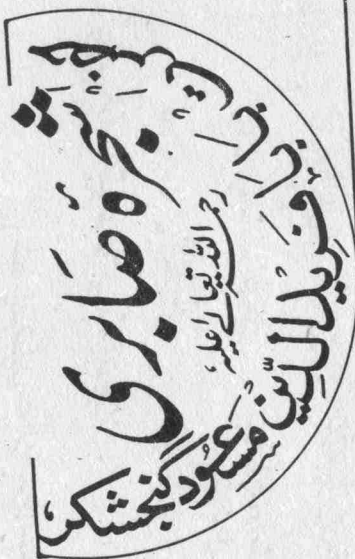 حضرت بابا فرید الدین مسعود گنجشکر
رحمۃ اللہ تعالےٰ علیہ
شجرہ صابری